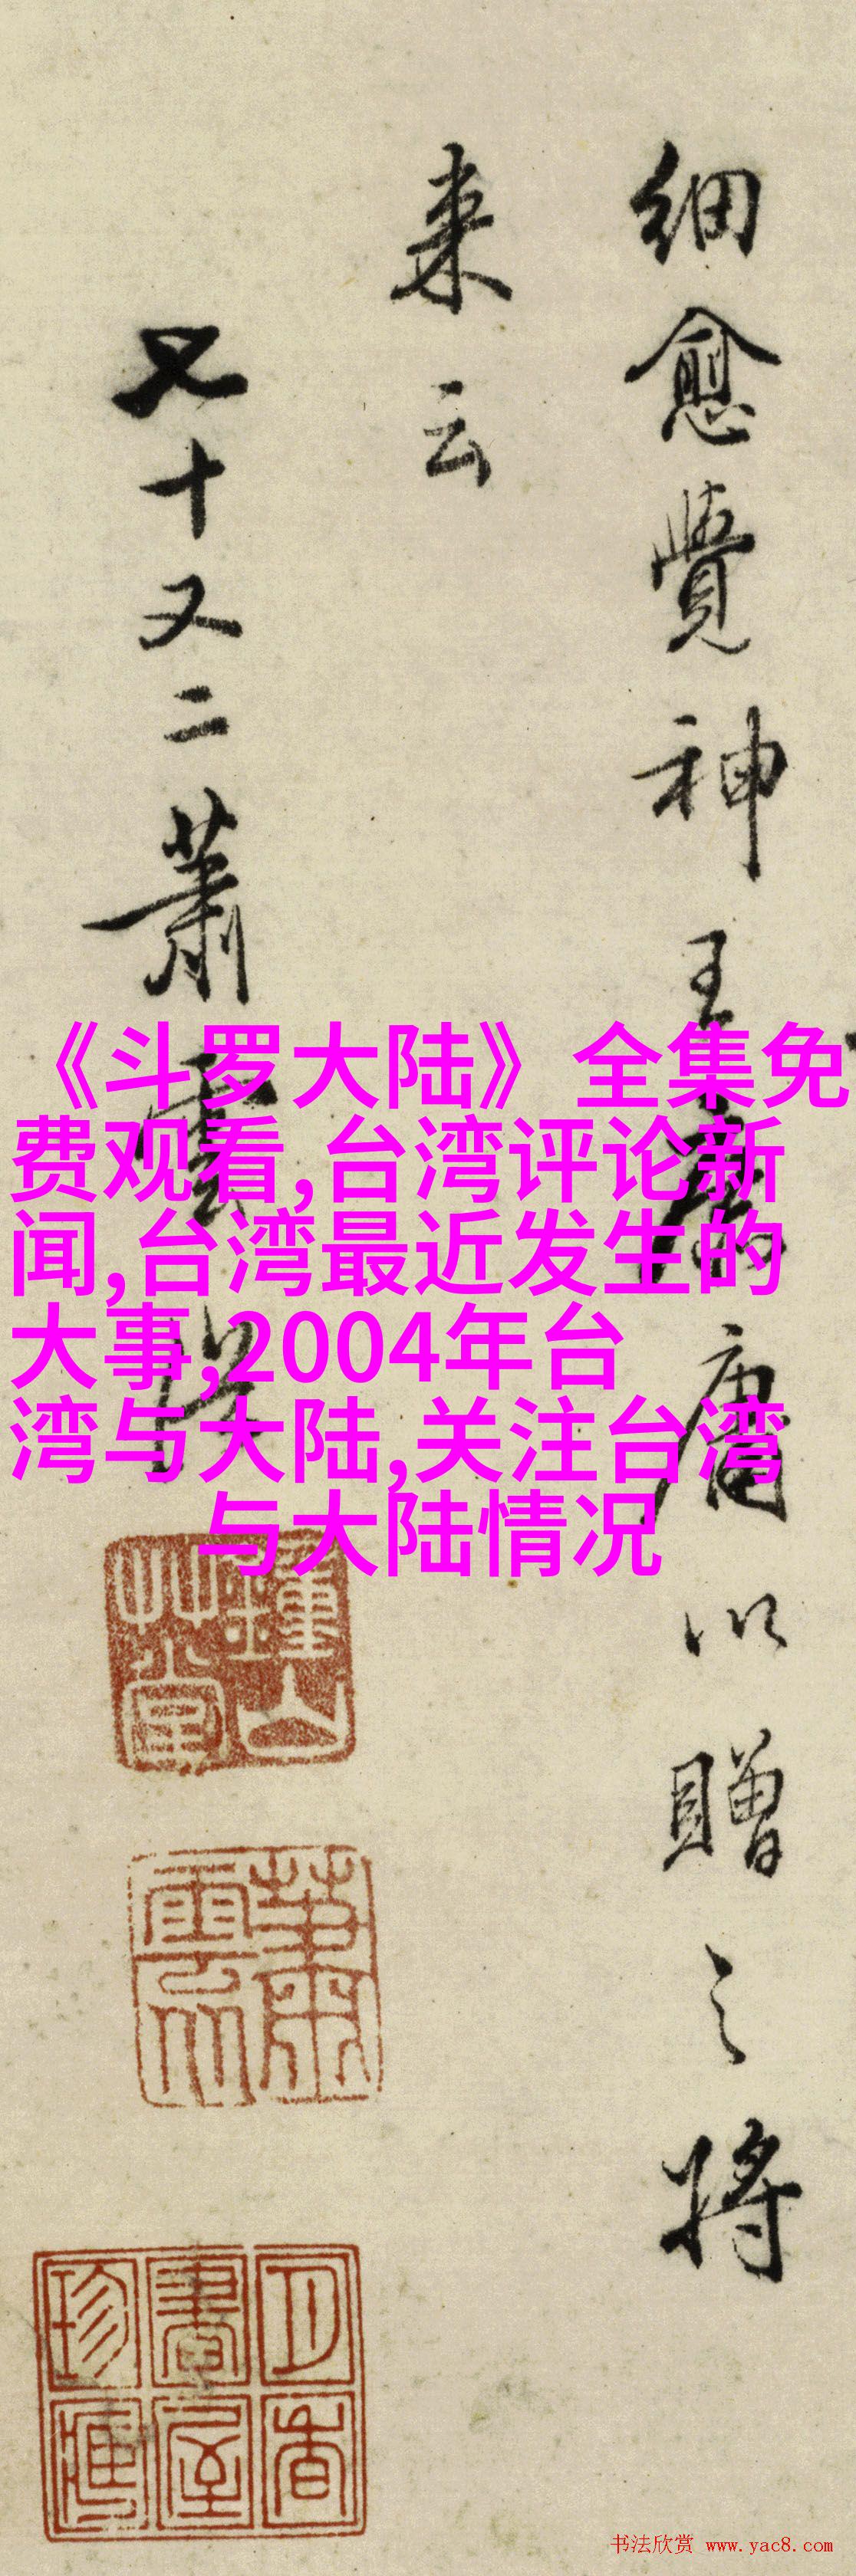 细愈覺神王
庸以贈之将
来云
十又二蕭雲
《斗罗大陆》全集免
费观看,台湾评论新
闻,台湾最近发生的
大事,2004年台
湾与大陆,关注台湾
与大陆情况
鍾山
艸堂
蕭
雲
月香
書屋
珍
书法欣赏 www.yac8.com